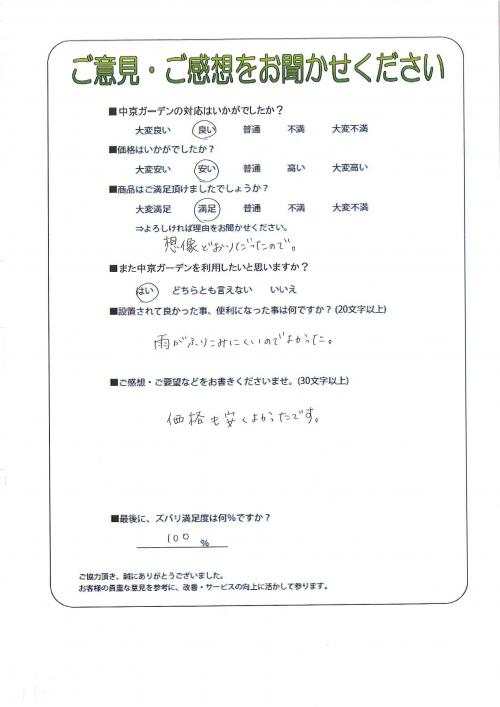 ご意見・ご感想をお聞かせください
■中京ガーデンの対応はいかがでしたか？
大変良い 良い 普通 不満 大変不満
■価格はいかがでしたか？
大変安い 安い 普通 高い 大変高い
■商品はご満足頂けましたでしょうか？
大変満足 満足 普通 不満 大変不満
⇒よろしければ理由をお聞かせください。
想像どおりだったので。
■また中京ガーデンを利用したいと思いますか？
はい どちらとも言えない いいえ
■設置されて良かった事、便利になった事は何ですか？(20文字以上)
雨がふりこみにくいのでよかった。
■ご感想・ご要望などをお書きくださいませ。(30文字以上)
価格も安くよかったです。
■最後に、ズバリ満足度は何％ですか？
100 %
ご協力頂き、誠にありがとうございました。
お客様の貴重な意見を参考に、改善・サービスの向上に活かして参ります。